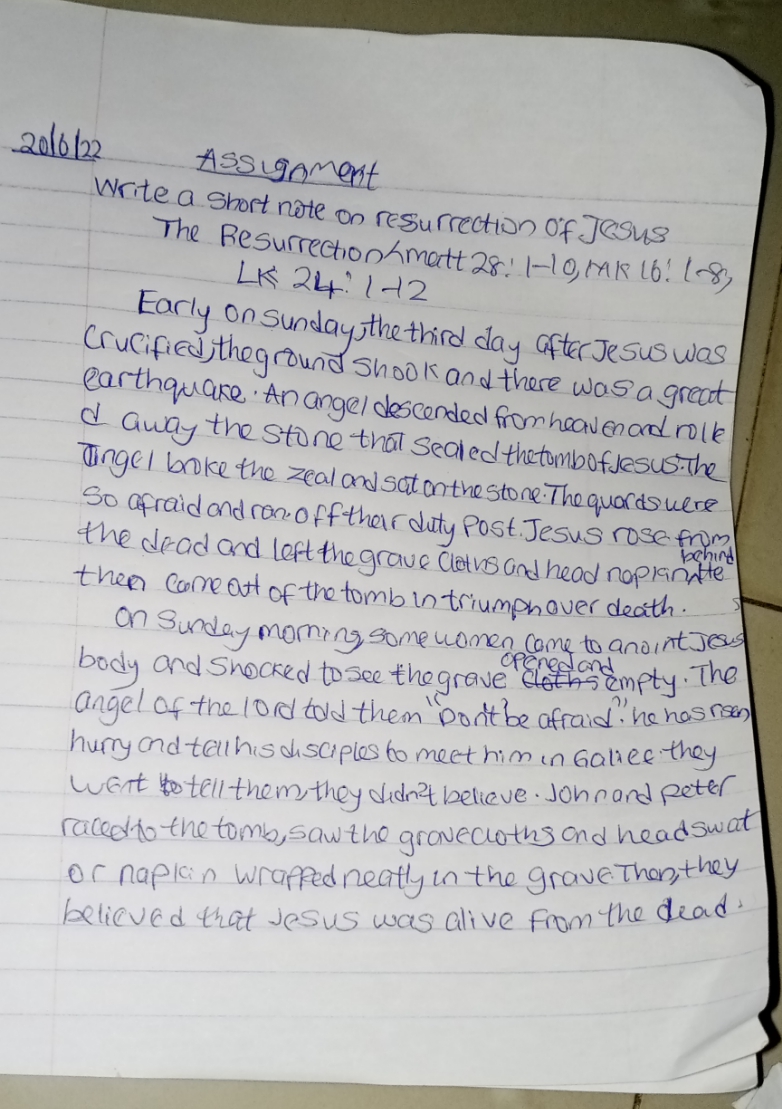 20/6/22
Assignment
Write a short note on resurrection of Jesus
The Resurrection matt 28: 1-10, MK 16: 1-8,
LK 24: 1-12
Early on sunday, the third day after Jesus was
Crucified, the ground shook and there was a great
earthquake. An angel descended from heaven and rolle
d away the stone that sealed the tomb of Jesus. The
angel broke the zeal and sat on the stone. The guards were
so afraid and ran off their duty post. Jesus rose from
the dead and left the grave cloths and head napkin behind He
then came out of the tomb in triumph over death.
On Sunday morning, some women came to anoint Jesus
body and shocked to see the grave opened and empty. The
angel of the lord told them "Don't be afraid". he has risen
hurry and tell his disciples to meet him in Galiee. they
went to tell them, they didn't believe. John and peter
raced to the tomb, saw the grave cloths and head swat
or napkin wrapped neatly in the grave. Then, they
believed that Jesus was alive from the dead.